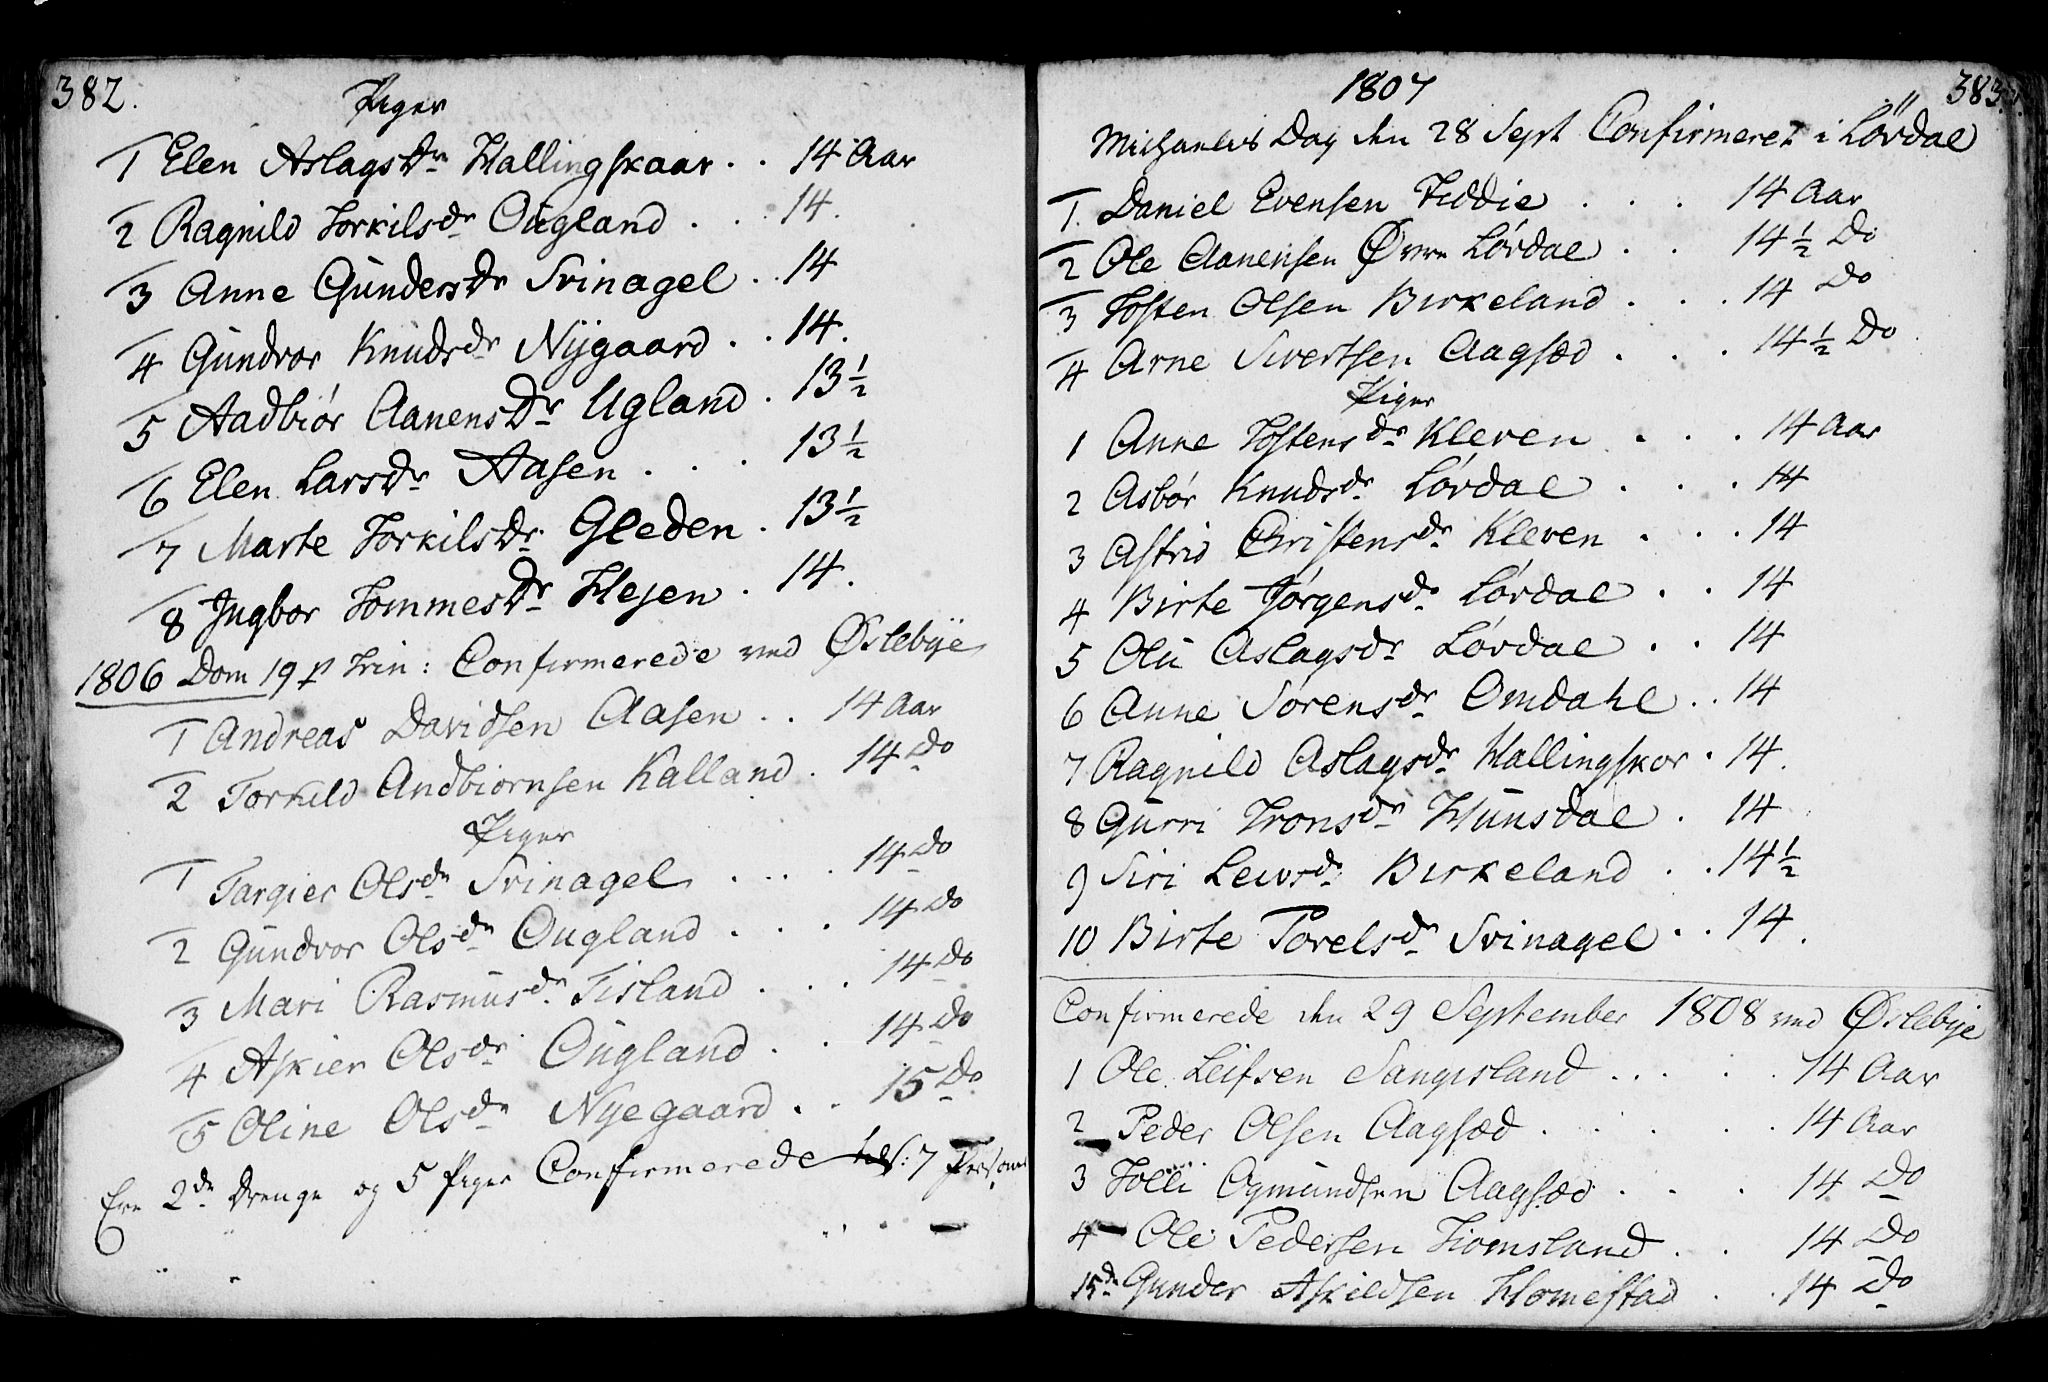 382.
Piger
1 Elen AslagsDr Hallingskaar . . 14 Aar
2 Ragnild Torkilsdr Ougland . . . 14.
3 Anne GundersDr Svinagel . . 14
4 Gundvor Knudsdr Nijgaard . . 14.
5 Aadbiör AanensDr Ugland . 13½
6 Elen LarsDr Aasen . . . 13½
7 Marte TorkilsDr Gleden . 13½
8 Ingbor TommesDr Hejen . 14.
1806 Dom 19 p Trin: Confirmerede ved Øslebÿe
1 Andreas Davidsen Aasen . . 14 Aar
2 Torkild Andbiörnsen Kalland . 14 Do
Piger
1 Targier Olsdr Svinagel . . . . 14 Do
2 Gundvor Olsdr Ougland . . . 14 Do
3 Mari Rasmusdr Tisland . . . 14 Do
4 Askier Olsdr Ougland . . 14 Do
5 Oline Olsdr Nyegaard . . 15 Do
Ere 2de Drenge og 5 Piger Confirmerede 7 Persone
1807
383
Michaelis Dag den 28 Sept Confirmeret i Lövdal
1. Daniel Evensen Fiddie . . . 14 Aar
2 Ole Aanensen Øvre Lövdal . . 14½ Do
3 Tosten Olsen Birkeland . . . 14 Do
4 Arne Sivertsen Aagsæd . . . 14½ Do
Piger
1 Anne Tostensdr Kleven . . . 14 Aar
2 Asbör Knudsdr Lövdal . . . 14
3 Astrid Christensdr Kleven . . . 14
4 Birte Jörgensdr Lövdal . . 14
5 Olü Aslagsdr Lövdal . . 14
6 Anne Sörensdr Omdahl . . 14
7 Ragnild Aslagsdr Hallingskor . 14.
8 Gurri Tronsdr Hunsdal . 14
9 Siri Leivsdr Birkeland . . 14½
10 Birte Torelsdr Svinagel . . 14.
Confirmerede den 29 September 1808 ved Øslebye
1 Ole Leifsen Sangisland . . . . . 14 Aar
2 Peder Olsen Aagsæd . . . . . 14 Aar
3 Tolli Ogmundsen Aagsæd . . . 14 Do
4 Ole Pedersen Tiomsland . . 14 Do
15de Gunder Askildsen Homestad . . 14 Do